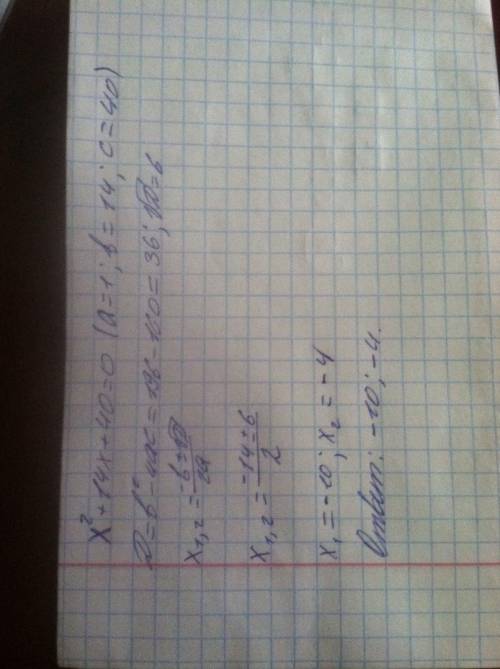 x²+14x+40=0 (a=1; b=14; c=40)
D=b²-4ac=196-160=36; √D=6
x₁,₂ = (-b±√D)/2a
x₁,₂ = (-14±6)/2
x₁=-10; x₂=-4
Ответ: -10; -4.